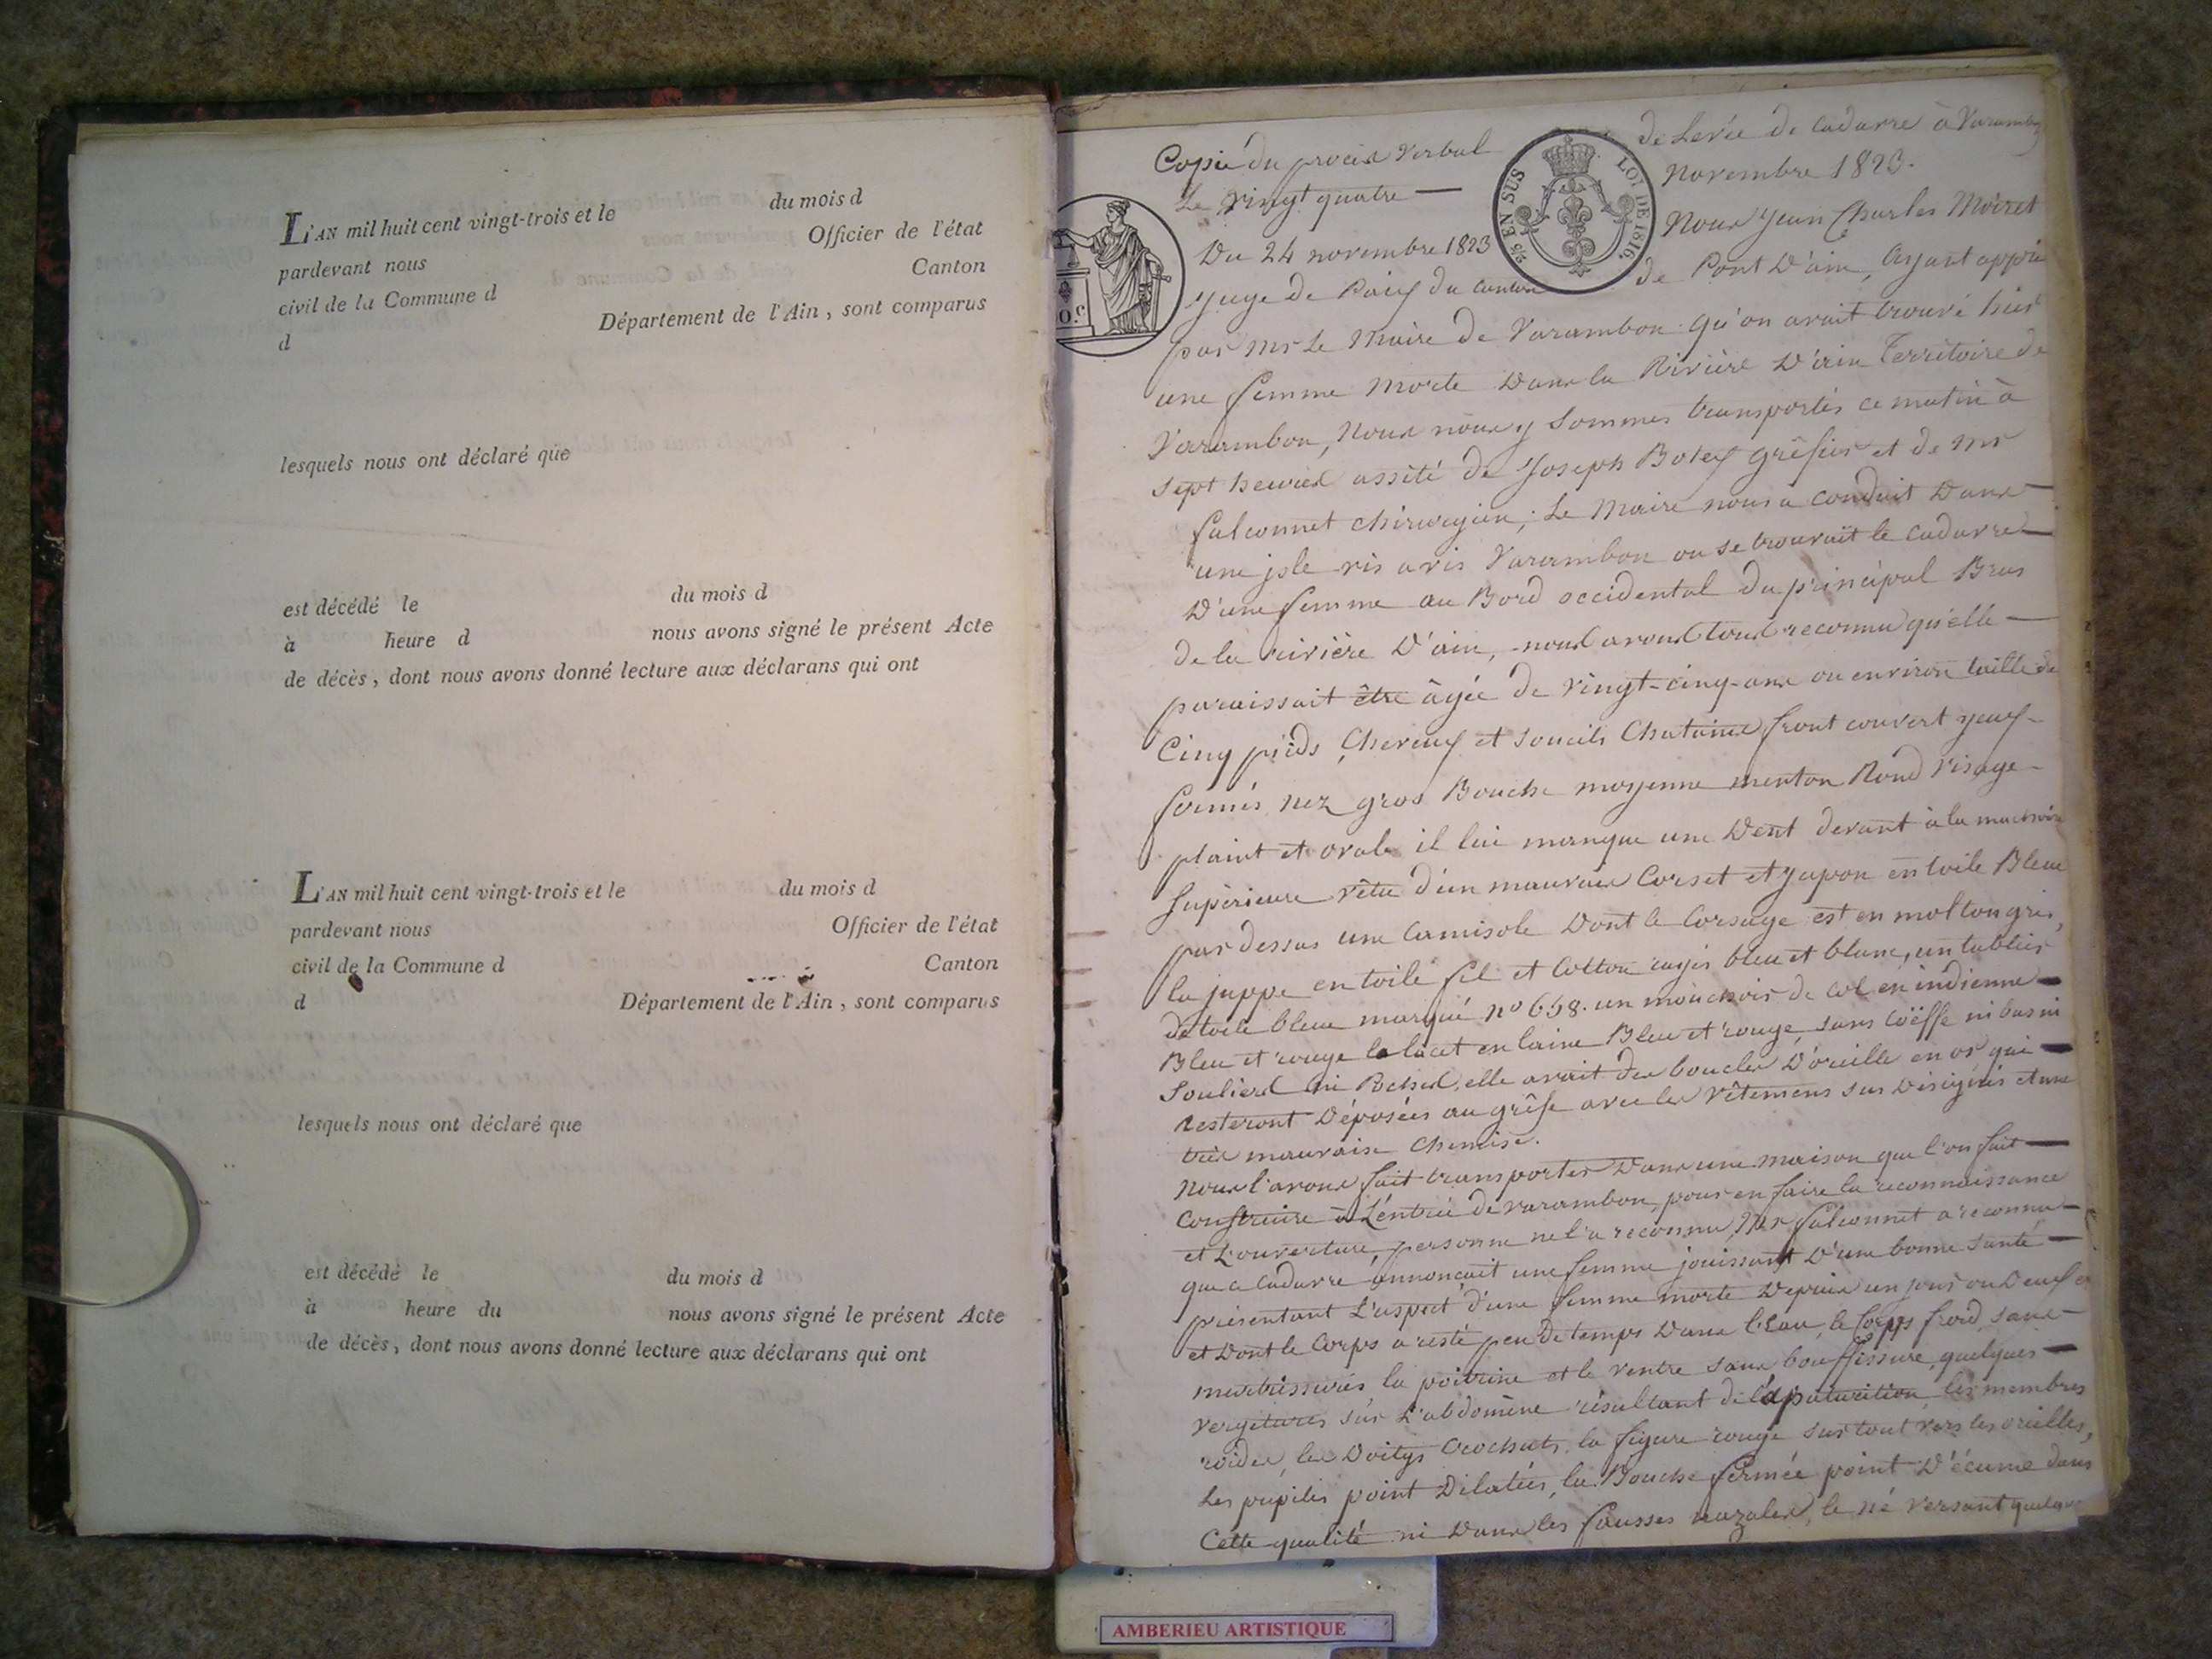 L'AN mil huit cent vingt-trois et le du mois d
pardevant nous Officier de l'état
civil de la Commune d Canton
d Département de l'Ain, sont comparus
lesquels nous ont déclaré que
est décédé le du mois d
à heure d nous avons signé le présent Acte
de décès, dont nous avons donné lecture aux déclarans qui ont
L'AN mil huit cent vingt-trois et le du mois d
pardevant nous Officier de l'état
civil de la Commune d Canton
d Département de l'Ain, sont comparus
lesquels nous ont déclaré que
est décédé le du mois d
à heure du nous avons signé le présent Acte
de décès, dont nous avons donné lecture aux déclarans qui ont
Copie du procès verbal de Levée de Cadavre à Varambon
Le vingt quatre — Novembre 1823.
EN SUS LOI DE 1816.
Du 24 novembre 1823 Nous Jean Charles Moiret
juge de Paix du Canton de Pont D'ain, Ayant appris
par mr Le Maire De Varambon qu'on avait trouvé hier
une femme Morte Dans la Rivière D'ain Territoire de
Varambon, Nous nous y Sommes transportés ce matin à
Sept heures assité de Joseph Botex gréfier et de mr
falconnet chirurgien; Le Maire nous a conduit Dans
une isle vis avis Varambon ou se trouvait le cadavre
D'une femme au Bord occidental du principal Bras
de la rivière D'ain, nous avons tous reconnu qu'elle
paraissait être âgée de vingt-cinq-ans ou environ taille de
Cinq pieds, Cheveux et Sourcils Chatains front couvert yeux
fermés nez gros Bouche moyenne menton Rond Visage
plaint et ovale il lui manque une Dent devant à la machoire
Supérieure vêtue d'un mauvais Corset et Jupon en toile Bleue
par dessus une Camisole Dont le Corsage est en molton gris,
la juppe en toile fil et Cotton rayés bleu et blanc, un tablier
de toile bleue marqué no 658. un mouchoir de col en indienne
Bleu et rouge le lacet en laine Bleu et rouge, sans Coëffe ni bas ni
Souliers ni Poches, elle avait des boucles D'oreille en or qui
resteront Déposées au grêfe avec les vêtemens sus Désignés et une
très mauvaise Chemise.
Nous l'avons fait transporter Dans une maison que l'on fait
Construire à L'entrée de Varambon, pour en faire la reconnaissance
et L'ouverture, personne ne l'a reconnu, Mr falconnet a reconnu
que ce Cadavre annoncait une femme jouissant D'une bonne Santé
présentant L'aspect d'une femme morte Depuis un jour ou Deux
et Dont le Corps a resté peu de temps Dans l'Eau, le Corps froid, sans
meurtrissures, la poitrine et le ventre sans bouffissure, quelques
vergetures sur L'abdomène résultant de les membres
roides, les Doitgs Crochuts, la figure rouge sur tout vers les oreilles,
Les pupiles point Dilatées, la Bouche fermée point D'écume dans
Cette qualité ni Dans les fausses nazales, le né versant quelque
AMBERIEU ARTISTIQUE